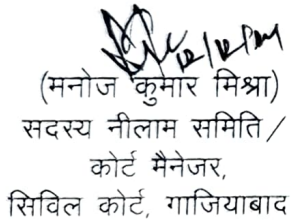 (मनोज कुमार मिश्रा)
सदस्य नीलाम समिति /
कोर्ट मैनेजर,
सिविल कोर्ट, गाजियाबाद